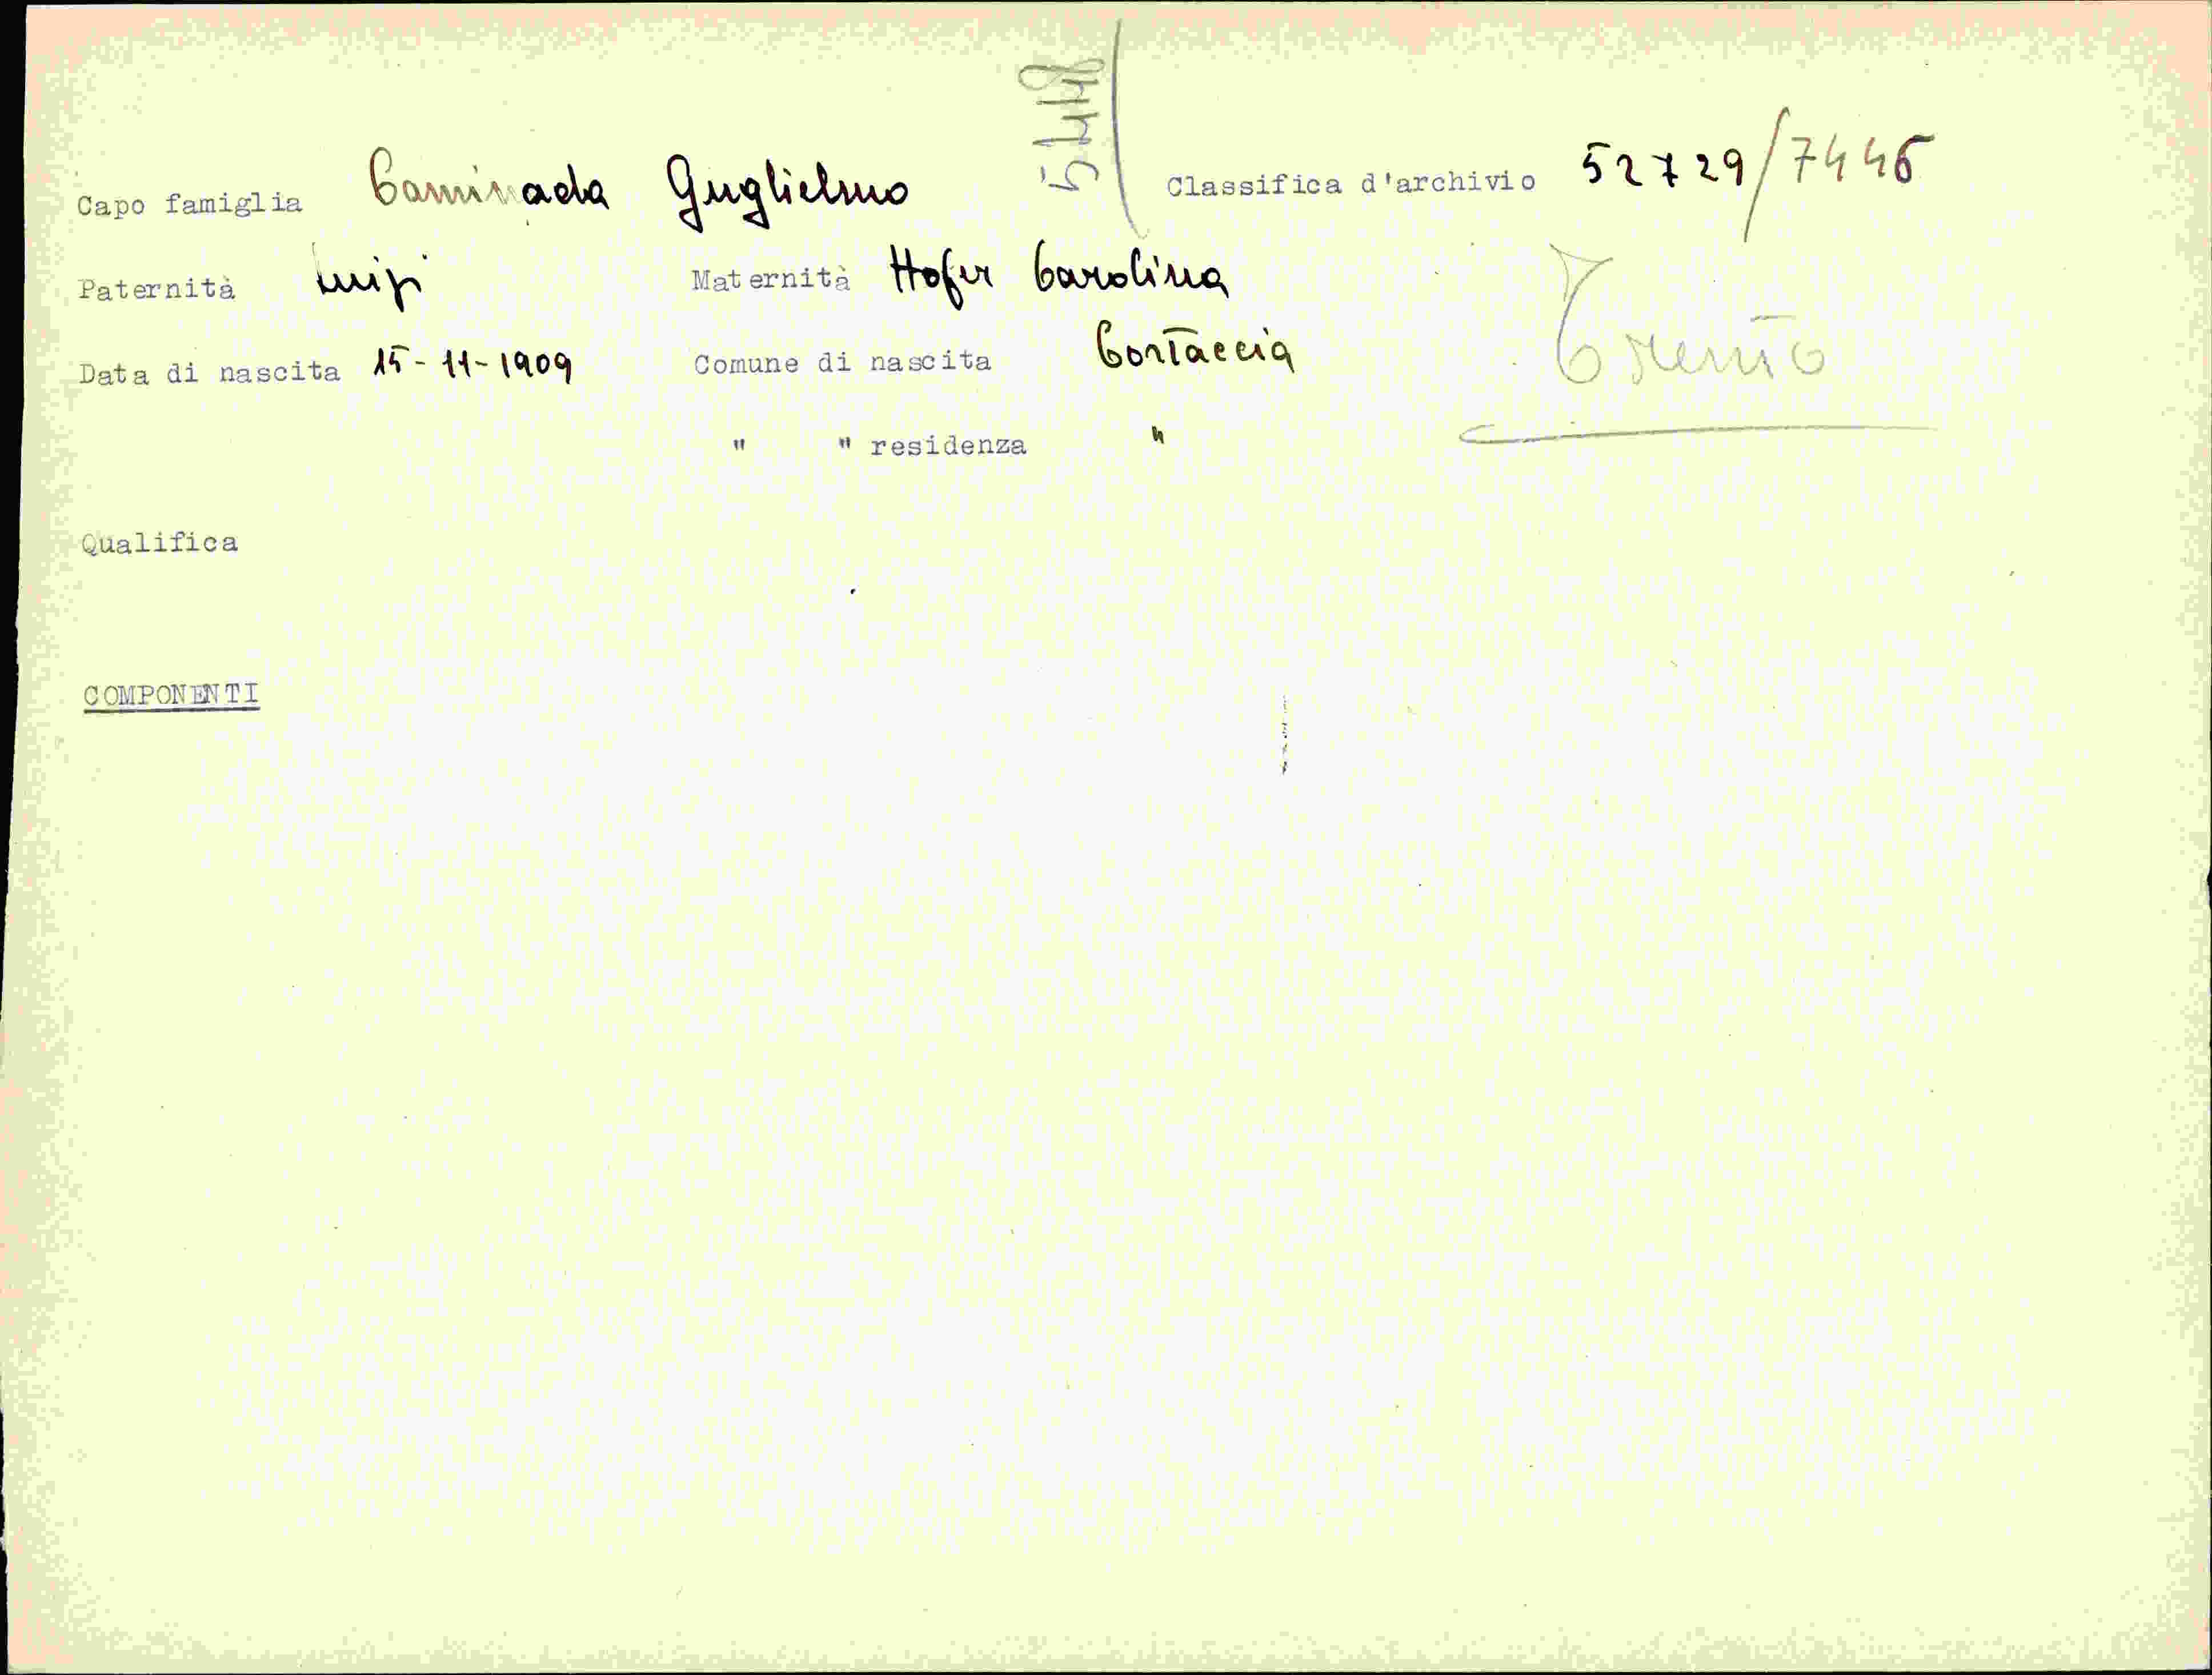 5448
Capo famiglia Caminada Guglielmo Classifica d'archivio 52729/7446
Paternità Luigi Maternità Hofer Carolina
Trento
Data di nascita 15-11-1909 Comune di nascita Cortaccia
" " residenza "
Qualifica
COMPONENTI